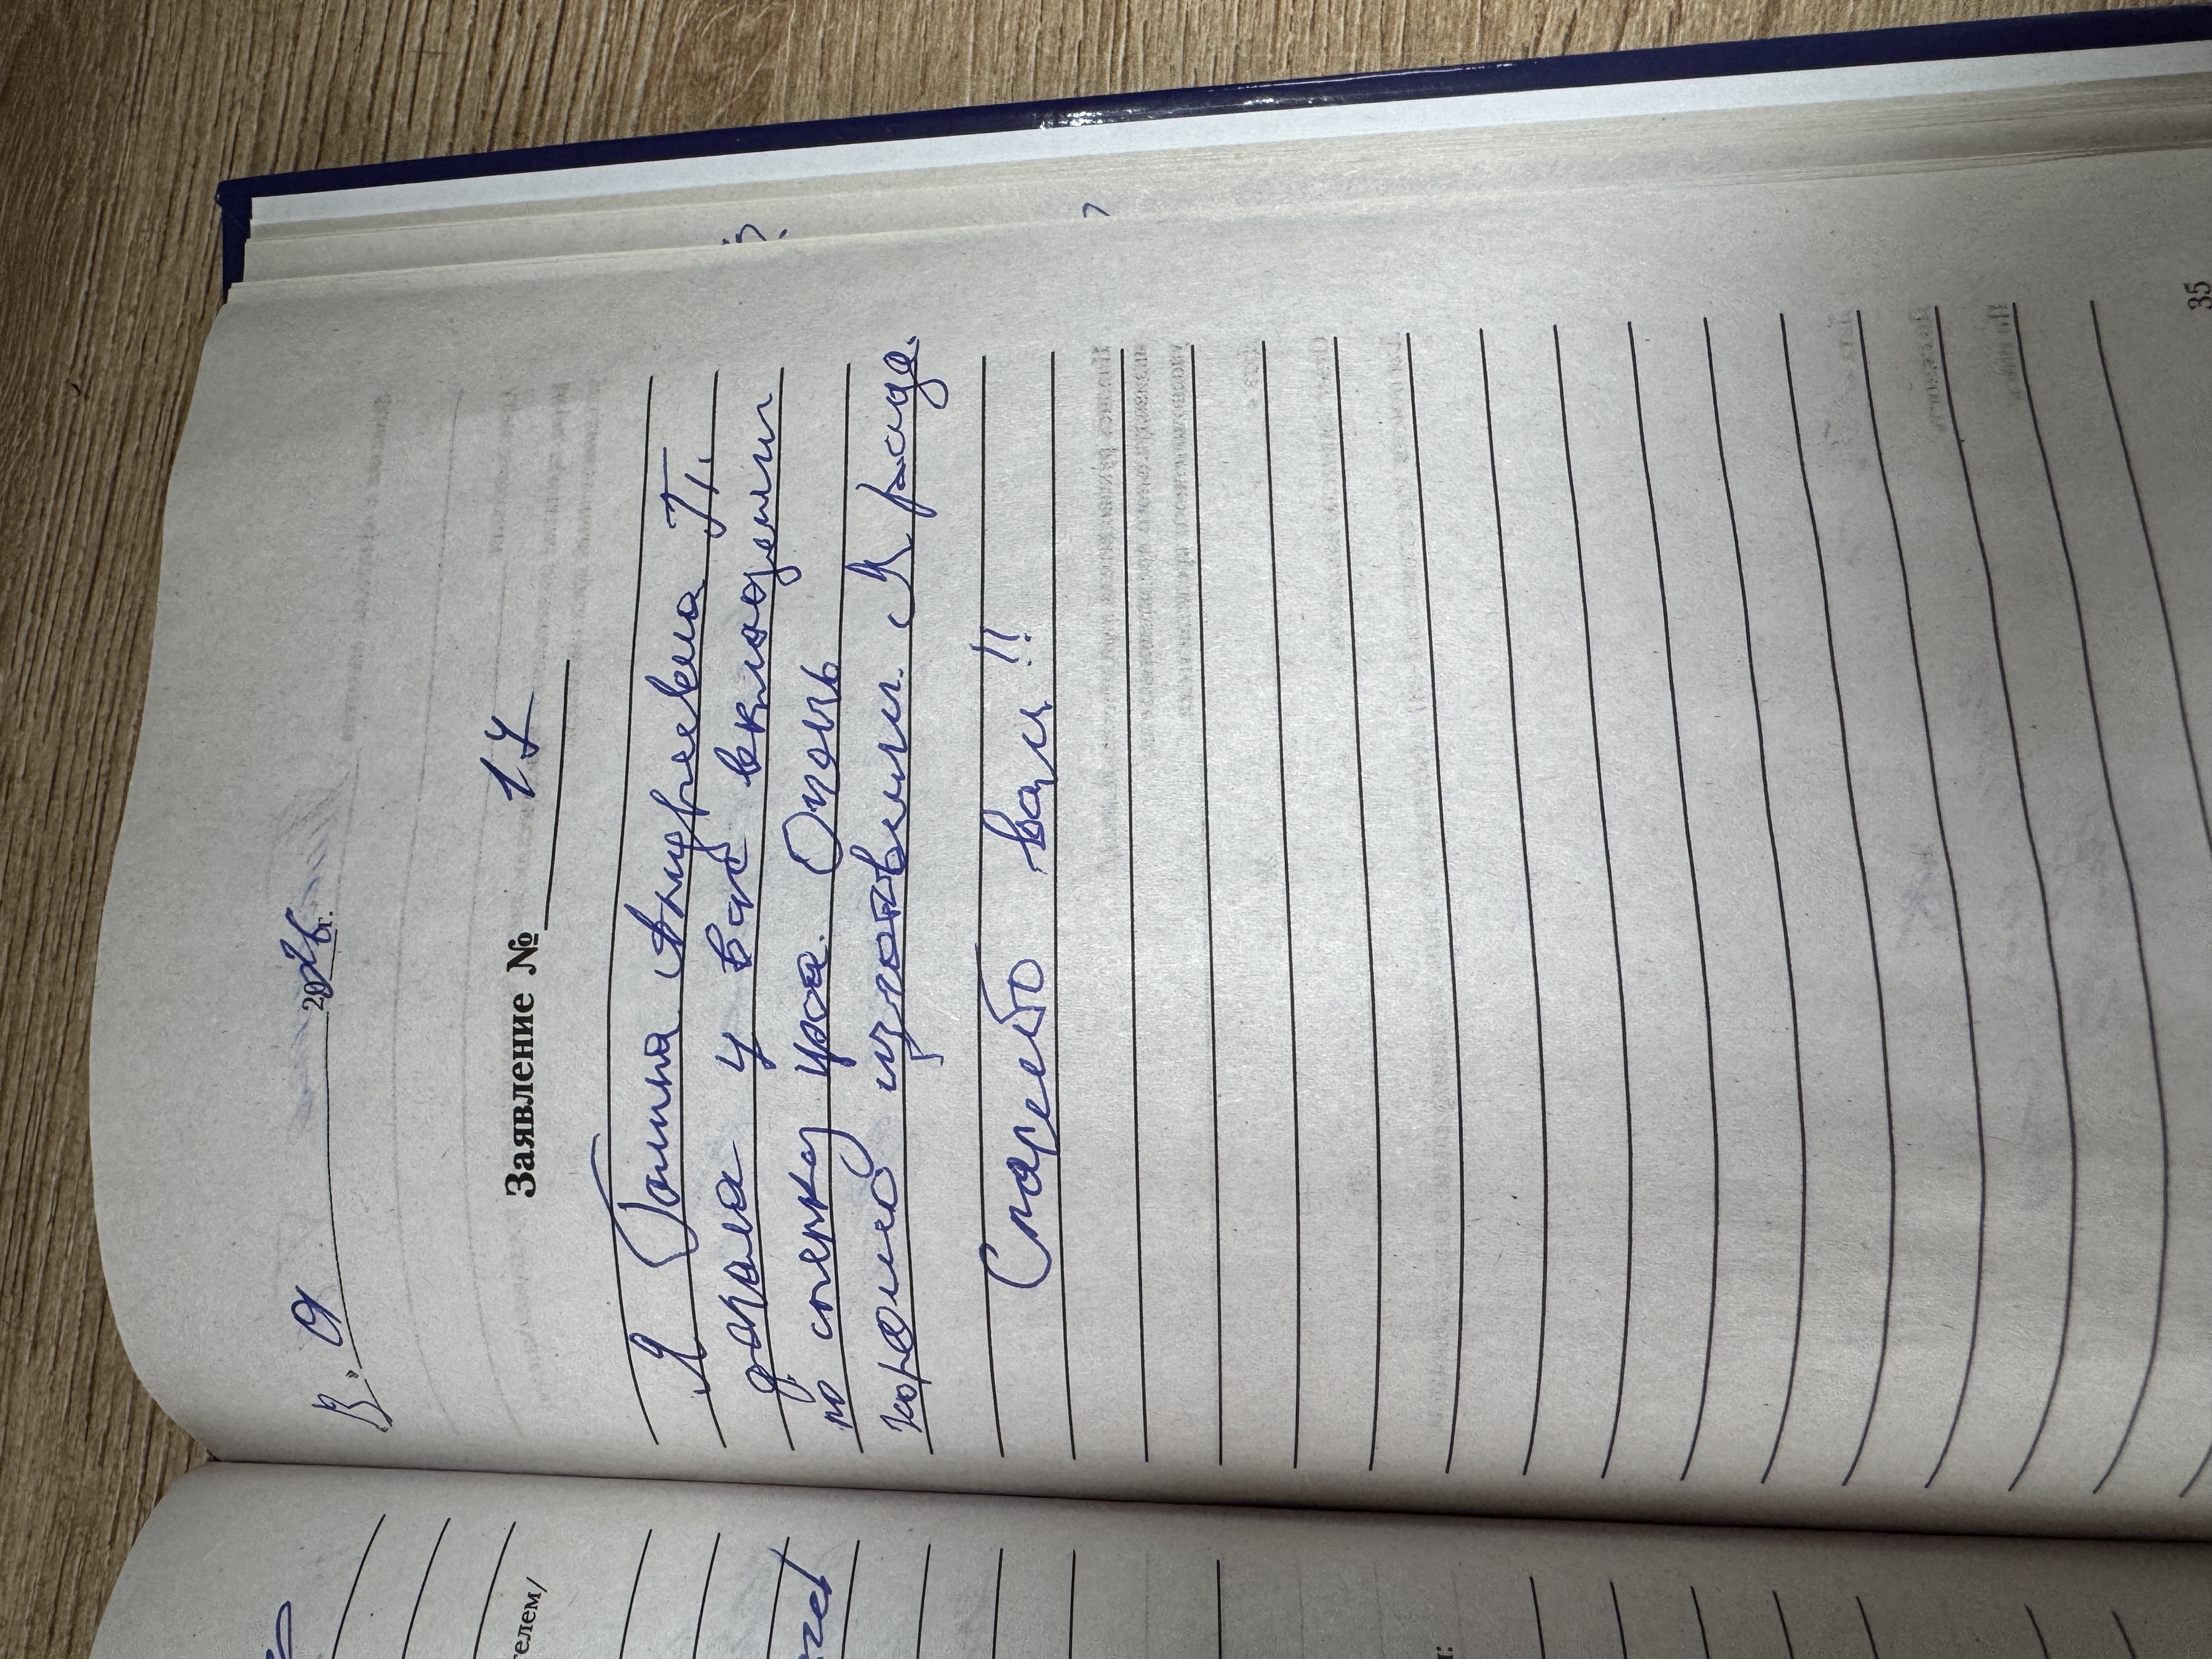 2026г.
Заявление № 17
Я Галина Андреевна П.
делала у вас вкладыши
по слепку уха. Очень
хорошо изготовили. Я рада.
Спасибо вам!!
35
телем/